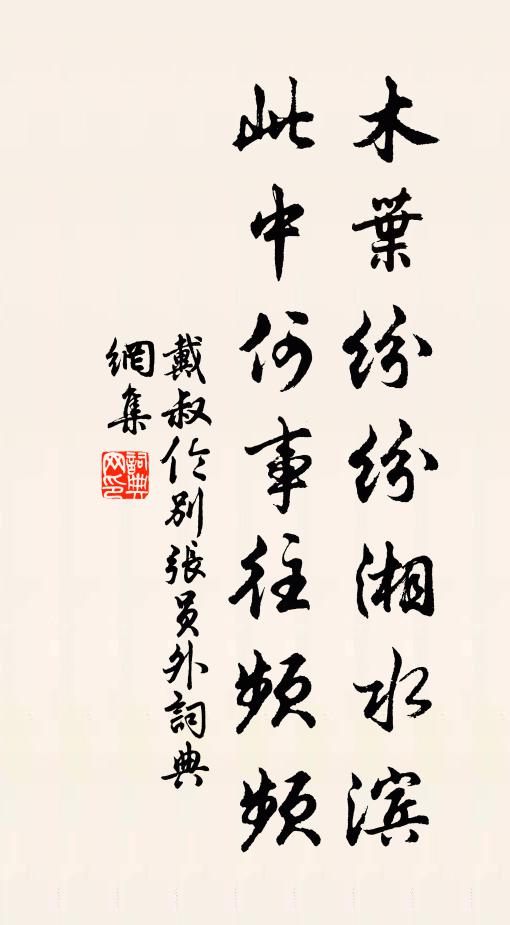 木葉紛紛湘水滨
此中何事往頻頻
戴叔伦别張员外詞典
網集
詞典
网印